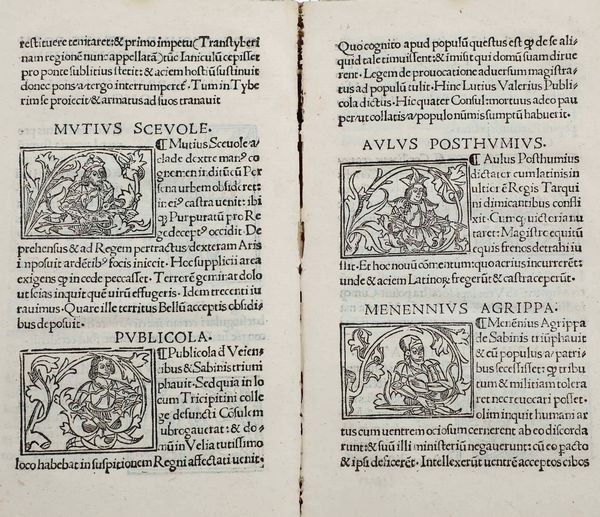 restituere temtaret: & primo impetu (Transtyberi
nam regionē nunc appellatā) tūc Ianiculū cepisset
pro ponte sublitius stetit: & aciem hostiū sustinuit
donec pons a tergo interrumperet. Tum in Tybe
rim se proiecit & armatus ad suos tranauit
MVTIVS SCEVOLE.
¶ Mutius Sceuole a
clade dextre man9 co
gnemen inditū cū Por
sena urbem obsideret:
in ei9 castra uenit: ibi
qꝫ Purpuratū pro Re
ge decept9 occidit. De
prehensus & ad Regem pertractus dexteram Aris
inposuit ardētib9 focis iniecit. Hoc supplicii area
exigens qꝫ in cede peccasset. Terrerē gemirat dolo
ut scias inquit quē uirū effugeris. Idem trecenti iu
rauimus. Quare ille territus Bellū acceptis obsidi
bus deposuit.
PVBLICOLA.
¶ Publicola d Veien
tibus & Sabinis trium
phauit. Sed quia in lo
cum Tricipitini colle
ge defuncti Cōsulem
ubrogauerat: & do
mū in Velia tutissimo
loco habebat in suspitionem Regni affectati uenit:
Quo cognito apud populū questus est qꝫ de se ali
quid tale timuissent: & imisit qui domū suam dirue
rent. Legem de prouocatione aduersum magistra
tus ad populū tulit. Hinc Lutius Valerius Publi
cola dictus. Hic quater Consul: mortuus adeo pau
per ut collatis a populo nūmis sumptū habuerit.
AVLVS POSTHVMIVS.
¶ Aulus Posthumius
dictater cum latinis in
ultiōē Regis Tarqui
ni dimicantibus confli
xit. Cumqꝫ uicteria nu
taret: Magister equitū
equis frenos detrahi iu
ssit. Et hoc nouū cōmentum: quo acrius incurrerēt:
unde & aciem Latinorꝫ fregerūt & castra ceperūt.
MENENNIVS AGRIPPA.
¶ Menēnius Agrippa
de Sabinis triūphauit
& cū populus a patri
bus secessisset: qꝫ tribu
tum & militiam tolera
ret nec reuocari posset.
olim inquit humani ar
tus cum uentrem ociosum cernerent ab eo discorda
runt: & suū illi ministeriū negauerunt: cū eo pacto
& ipsi deficerēt. Intellexerūt uentrē acceptos cibos